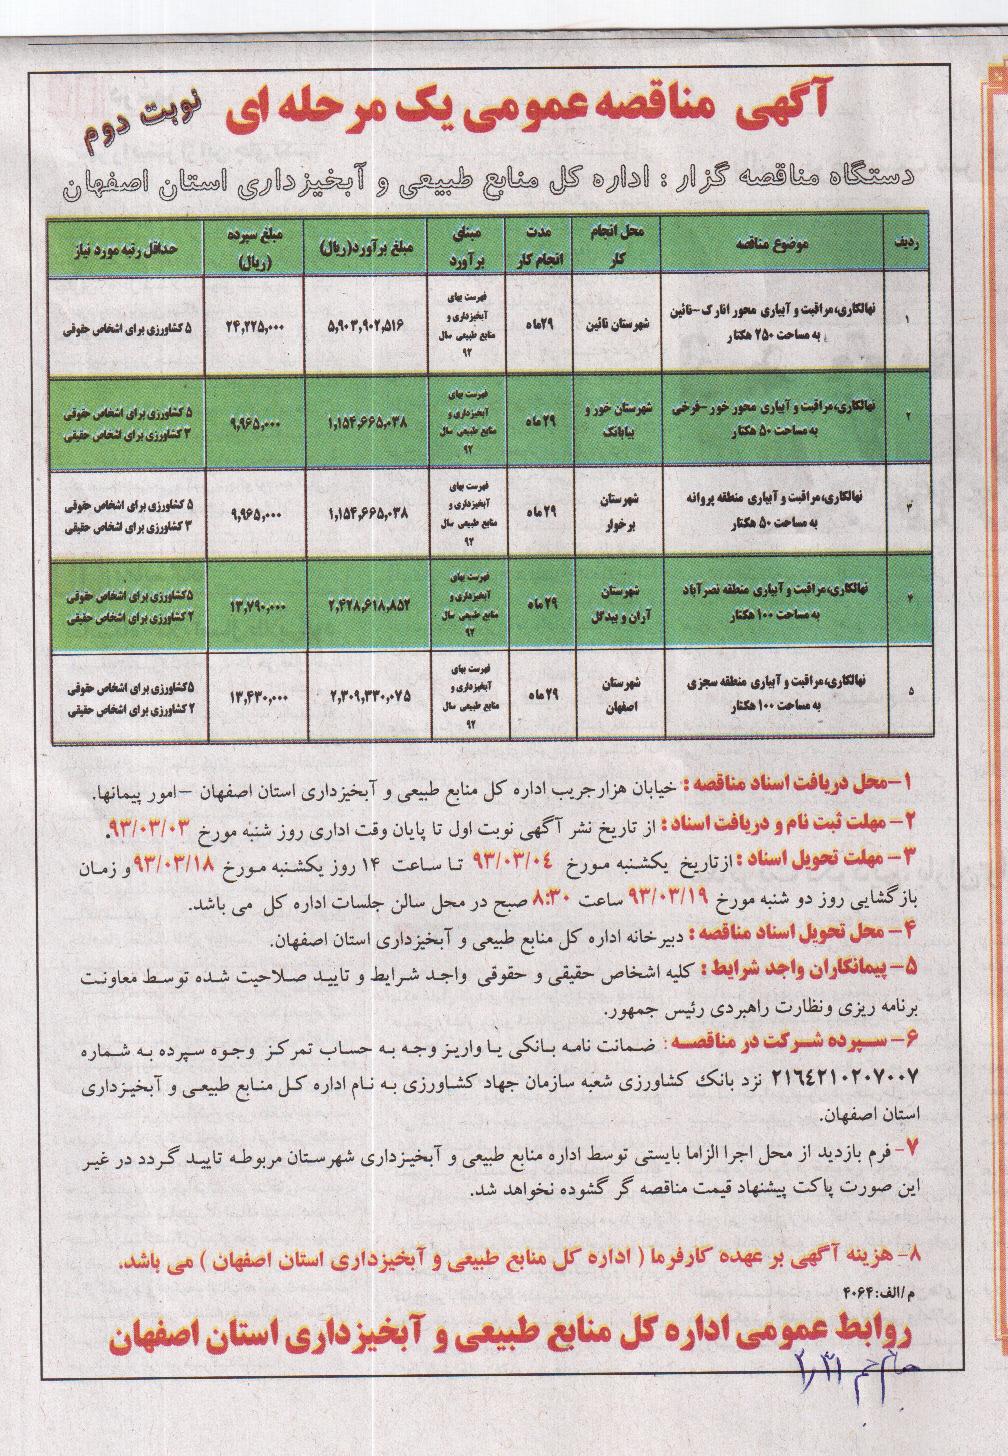 آگهی مناقصه عمومی یک مرحله ای
نوبت دوم
دستگاه مناقصه گزار : اداره کل منابع طبیعی و آبخیزداری استان اصفهان
ردیف موضوع مناقصه محل انجام کار مدت انجام کار مبنای برآورد مبلغ برآورد(ریال) مبلغ سپرده (ریال) حداقل رتبه مورد نیاز
۱ نهالکاری،مراقبت و آبیاری محور انارک-نائین به مساحت ۲۵۰ هکتار شهرستان نائین ۲۹ماه فهرست بهای آبخیزداری و منابع طبیعی سال ۹۲ ۵,۹۰۳,۹۰۲,۵۱۶ ۲۴,۲۲۵,۰۰۰ ۵ کشاورزی برای اشخاص حقوقی
۲ نهالکاری،مراقبت و آبیاری محور خور-فرخی به مساحت ۵۰ هکتار شهرستان خور و بیابانک ۲۹ ماه فهرست بهای آبخیزداری و منابع طبیعی سال ۹۲ ۱,۱۵۴,۶۶۵,۰۳۸ ۹,۹۶۵,۰۰۰ ۵ کشاورزی برای اشخاص حقوقی ۳ کشاورزی برای اشخاص حقیقی
۳ نهالکاری،مراقبت و آبیاری منطقه پروانه به مساحت ۵۰ هکتار شهرستان برخوار ۲۹ ماه فهرست بهای آبخیزداری و منابع طبیعی سال ۹۲ ۱,۱۵۴,۶۶۵,۰۳۸ ۹,۹۶۵,۰۰۰ ۵ کشاورزی برای اشخاص حقوقی ۳ کشاورزی برای اشخاص حقیقی
۴ نهالکاری،مراقبت و آبیاری منطقه نصرآباد به مساحت ۱۰۰ هکتار شهرستان آران و بیدگل ۲۹ ماه فهرست بهای آبخیزداری و منابع طبیعی سال ۹۲ ۲,۴۲۸,۶۱۸,۸۵۲ ۱۳,۷۹۰,۰۰۰ ۵کشاورزی برای اشخاص حقوقی ۲ کشاورزی برای اشخاص حقیقی
۵ نهالکاری،مراقبت و آبیاری منطقه سجزی به مساحت ۱۰۰ هکتار شهرستان اصفهان ۲۹ ماه فهرست بهای آبخیزداری و منابع طبیعی سال ۹۲ ۲,۳۰۹,۳۳۰,۰۷۵ ۱۳,۴۳۰,۰۰۰ ۵کشاورزی برای اشخاص حقوقی ۲ کشاورزی برای اشخاص حقیقی
۱-محل دریافت اسناد مناقصه : خیابان هزارجریب اداره کل منابع طبیعی و آبخیزداری استان اصفهان -امور پیمانها.
۲- مهلت ثبت نام و دریافت اسناد : از تاریخ نشر آگهی نوبت اول تا پایان وقت اداری روز شنبه مورخ ۹۳/۰۳/۰۳.
۳- مهلت تحویل اسناد : ازتاریخ یکشنبه مورخ ۹۳/۰۳/۰۴ تا ساعت ۱۴ روز یکشنبه مورخ ۹۳/۰۳/۱۸ و زمان
بازگشایی روز دو شنبه مورخ ۹۳/۰۳/۱۹ ساعت ۸:۳۰ صبح در محل سالن جلسات اداره کل می باشد.
۴- محل تحویل اسناد مناقصه : دبیرخانه اداره کل منابع طبیعی و آبخیزداری استان اصفهان.
۵- پیمانکاران واجد شرایط : کلیه اشخاص حقیقی و حقوقی واجد شرایط و تایید صلاحیت شده توسط معاونت
برنامه ریزی ونظارت راهبردی رئیس جمهور.
۶- سپرده شرکت در مناقصه : ضمانت نامه بانکی یا واریز وجه به حساب تمرکز وجوه سپرده به شماره
۲۱۶۴۲۱۰۲۰۷۰۰۷ نزد بانک کشاورزی شعبه سازمان جهاد کشاورزی به نام اداره کل منابع طبیعی و آبخیزداری
استان اصفهان.
۷- فرم بازدید از محل اجرا الزاما بایستی توسط اداره منابع طبیعی و آبخیزداری شهرستان مربوطه تایید گردد در غیر
این صورت پاکت پیشنهاد قیمت مناقصه گر گشوده نخواهد شد.
۸- هزینه آگهی بر عهده کارفرما ( اداره کل منابع طبیعی و آبخیزداری استان اصفهان ) می باشد.
م/الف:۴۰۶۴
روابط عمومی اداره کل منابع طبیعی و آبخیزداری استان اصفهان
جام جم ۲/۳۱